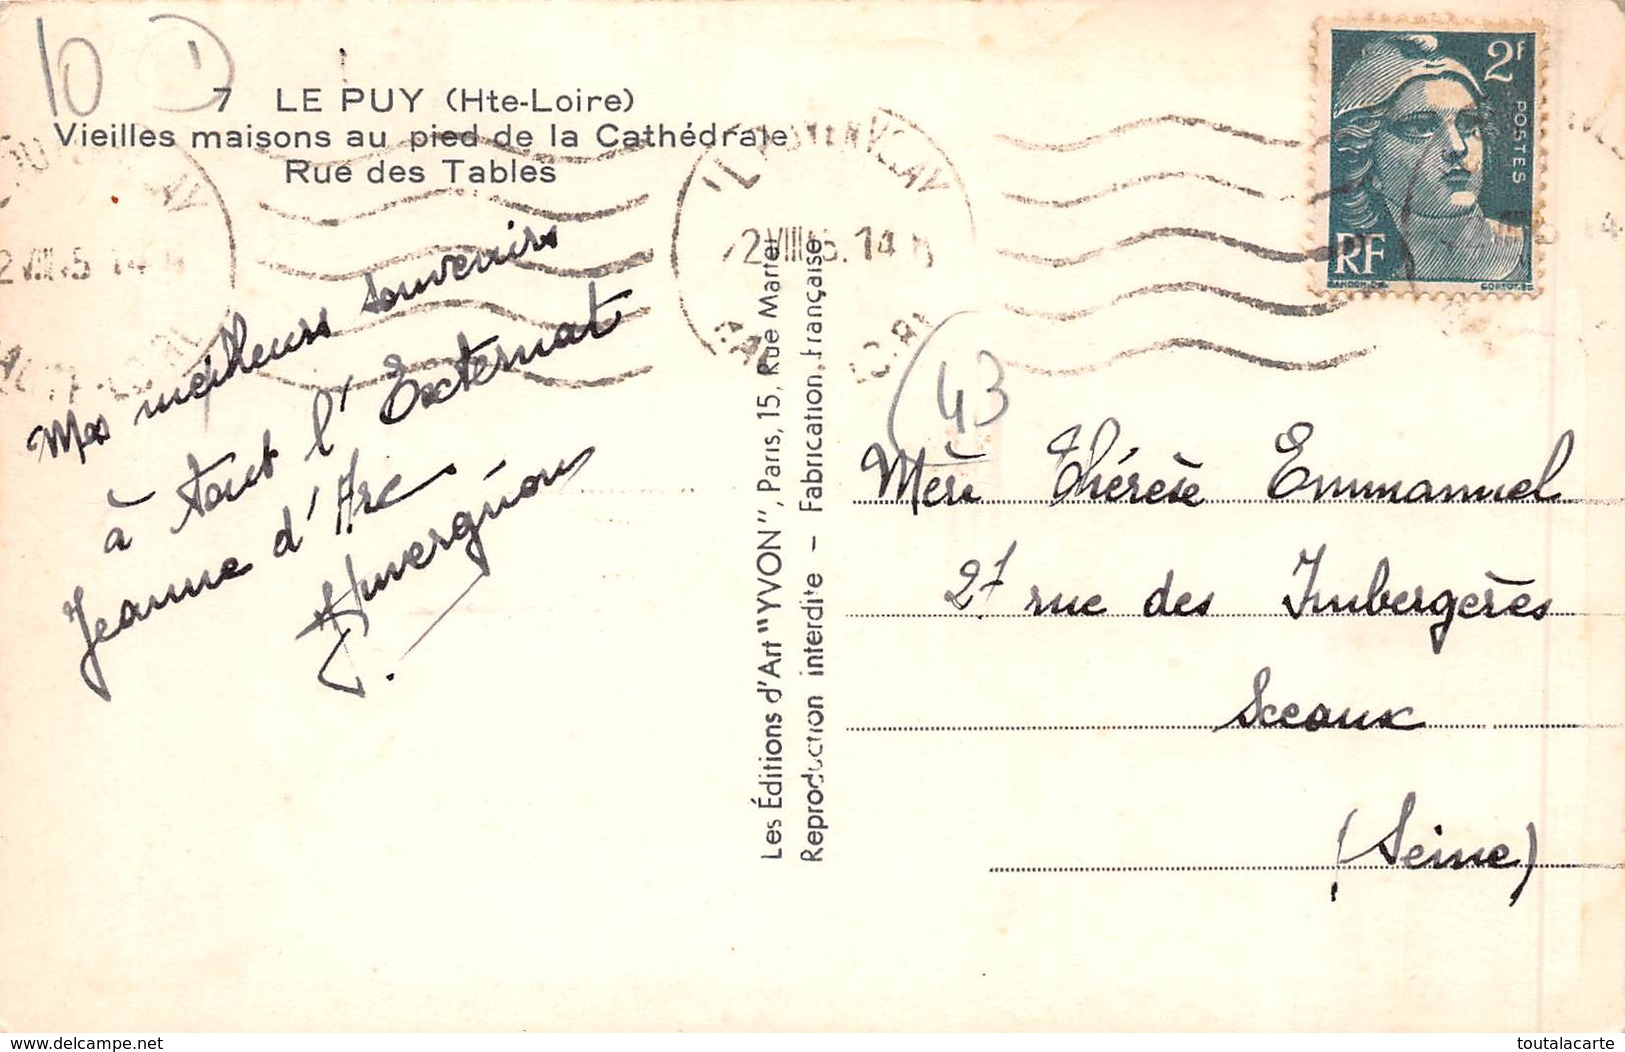 10 1
7 LE PUY (Hte-Loire)
Vieilles maisons au pied de la Cathédrale
Rue des Tables
Mes meilleurs souvenirs
à tout l'Externat
Jeanne d'Arc
Les Éditions d'Art "YVON", Paris, 15, Rue Martel
Reproduction interdite - Fabrication française
2F
POSTES
RF
GANDON DEL.
CORTOT SC.
43
Mère Thérèse Emmanuel
27 rue des Imbergères
Sceaux
(Seine)
www.delcampe.net
toutalacarte